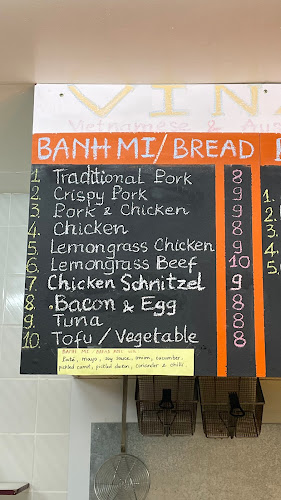 VIN
Vietnamese & Aus
BANH MI/BREAD
1. Traditional Pork 8
2. Crispy Pork 9
3. Pork & Chicken 9
4. Chicken 8
5. Lemongrass Chicken 9
6. Lemongrass Beef 10
7 Chicken Schnitzel 9
8. Bacon & Egg 8
9. Tuna 8
10. Tofu / Vegetable 8
Paté, mayo, soy sauce, onion, cucumber,
pickled carrot, pickled daikon, coriander & chilli
1.
2.
3.
4.
5.